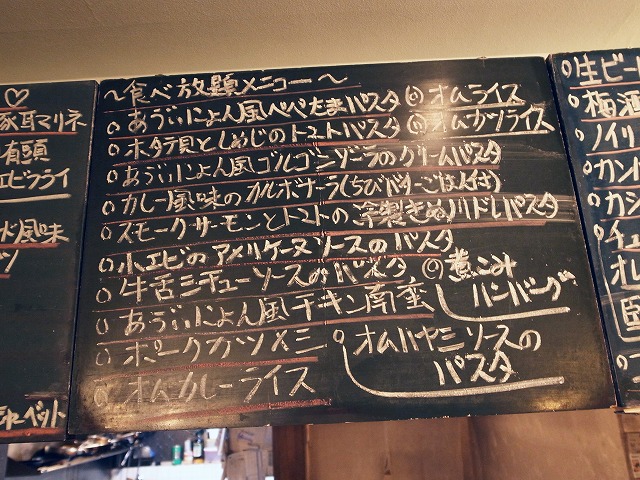 ♡
豚耳マリネ
有頭
エビフライ
風味
ャーベット
～食べ放題メニュー～
○あづぃにょん風ペペたまパスタ ◎オムライス
○ホタテ貝としめじのトマトパスタ ◎オムカツライス
○あづぃにょん風ゴルゴンゾーラのクリームパスタ
○カレー風味のカルボナーラ(ちびバターごはん付)
○スモークサーモンとトマトの冷製きぬハリドレパスタ
○小エビのアメリケーヌソースのパスタ
○牛舌シチューソースのパスタ ◎煮こみハンバーグ
○あづぃにょん風チキン南蛮
○ポークカツメシ ○オムハヤシソースのパスタ
○オムカレーライス
○生ビー
○梅酒
○ノイリ
○カンパ
○カシ
○チュ
オレ